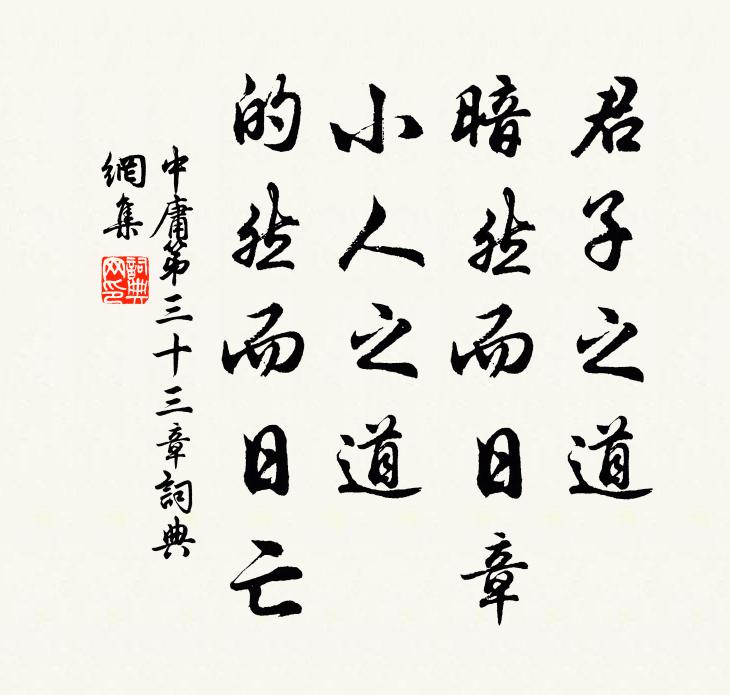 君子之道
暗然而日章
小人之道
的然而日亡
中庸第三十三章詞典
網集
詞典
网印